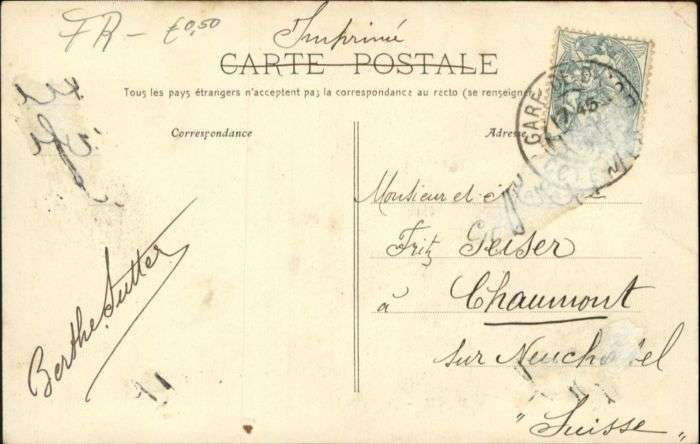 FR - €0,50
Imprimé
CARTE POSTALE
Tous les pays étrangers n'acceptent pas la correspondance au recto (se renseigner
Correspondance
Adresse
GARE
Monsieur et
Fritz Geiser
à Chaumont
sur Neuchâtel
"Suisse
Berthe Sutter